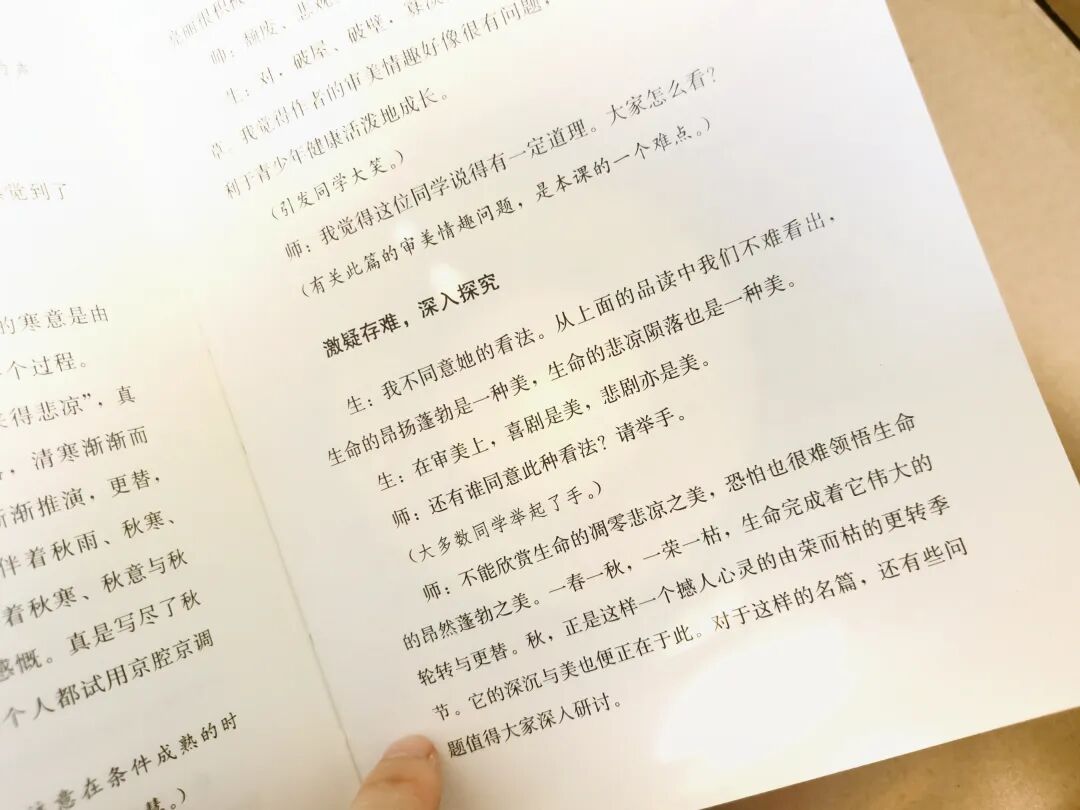 冬觉到了
的寒意是由
个过程。
来得悲凉”,真
,清寒渐渐而
渐渐推演,更替,
伴着秋雨、秋寒、
着秋寒、秋意与秋
感慨。真是写尽了秋
个人都试用京腔京调
注意在条件成熟的时
师:颓废、悲观、
生:对,破屋、破壁,
草。我觉得作者的审美情趣好像很有问题,
利于青少年健康活泼地成长。
(引发同学大笑。)
师:我觉得这位同学说得有一定道理。大家怎么看?
(有关此篇的审美情趣问题,是本课的一个难点。)
激疑存难,深入探究
生:我不同意她的看法。从上面的品读中我们不难看出,
生命的昂扬蓬勃是一种美,生命的悲凉陨落也是一种美。
生:在审美上,喜剧是美,悲剧亦是美。
师:还有谁同意此种看法?请举手。
(大多数同学举起了手。)
师:不能欣赏生命的凋零悲凉之美,恐怕也很难领悟生命
的昂然蓬勃之美。一春一秋,一荣一枯,生命完成着它伟大的
轮转与更替。秋,正是这样一个撼人心灵的由荣而枯的更转季
节。它的深沉与美也便正在于此。对于这样的名篇,还有些问
题值得大家深入研讨。